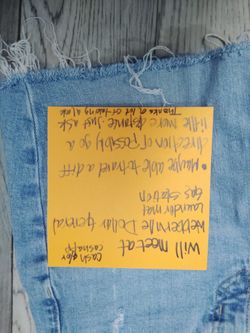 Will meet at
cash &/or
cashapp
Webberville Dollar general
laundermat
gas station
• Maybe able to travel a diff
direction or possibly go a
little more distance just ask
Thanks a lot for taking a look